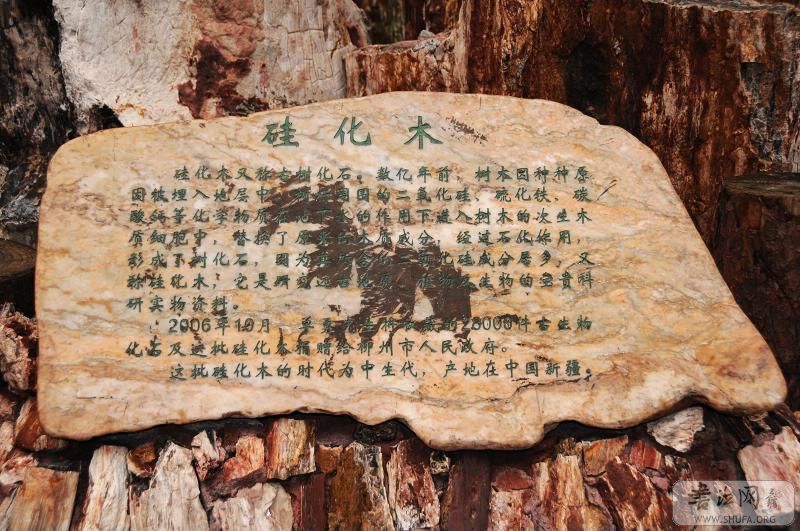 硅化木
硅化木又称古树化石。数亿年前，树木因种种原
因被埋入地层中，周围的二氧化硅、硫化铁、碳
酸钙等化学物质在地下水的作用下进入树木的次生木
质细胞中，替换了原来的木质成分，经过石化作用，
形成了树化石，因为其所含的二氧化硅成分居多，又
称硅化木，它是研究远古地质、植物及生物的宝贵科
研实物资料。
2006年10月，先生将收藏的28000件古生物
化石及这批硅化木捐赠给柳州市人民政府。
这批硅化木的时代为中生代，产地在中国新疆。
书法网
WWW.SHUFA.ORG